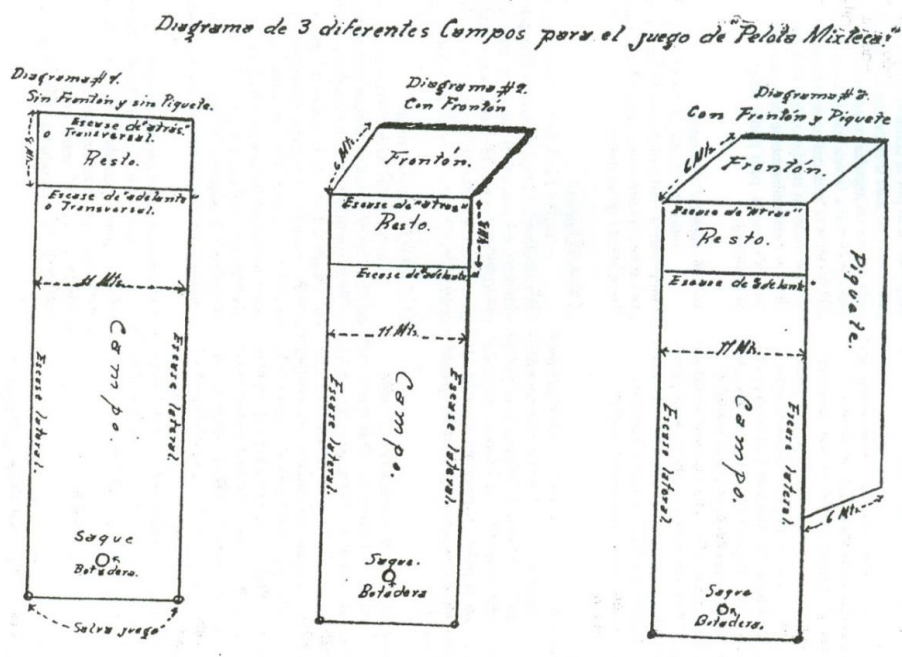 Diagrama de 3 diferentes Campos para el juego de "Pelota Mixteca."
Diagrama # 1.
Sin Frontón y sin Piquete.
Escase de "atrás"
o Transversal.
Resto.
Escase de "adelante"
o Transversal.
11 Mts.
Campo.
Escase lateral.
Escase lateral.
Saque
Botadera.
Salva juego
Diagrama # 2.
Con Frontón
6 Mts.
Frontón.
Escase de "atras"
Resto.
Escase de "adelante"
11 Mts.
Campo.
Escase lateral.
Escase lateral.
Saque.
Botadera
Diagrama # 3.
Con Frontón y Piquete
6 Mts.
Frontón.
Escase de "Atras"
Resto.
Escase de adelante
Piquete.
11 Mts.
Campo.
Escase lateral.
Escase lateral.
6 Mts.
Saque
Botadera.